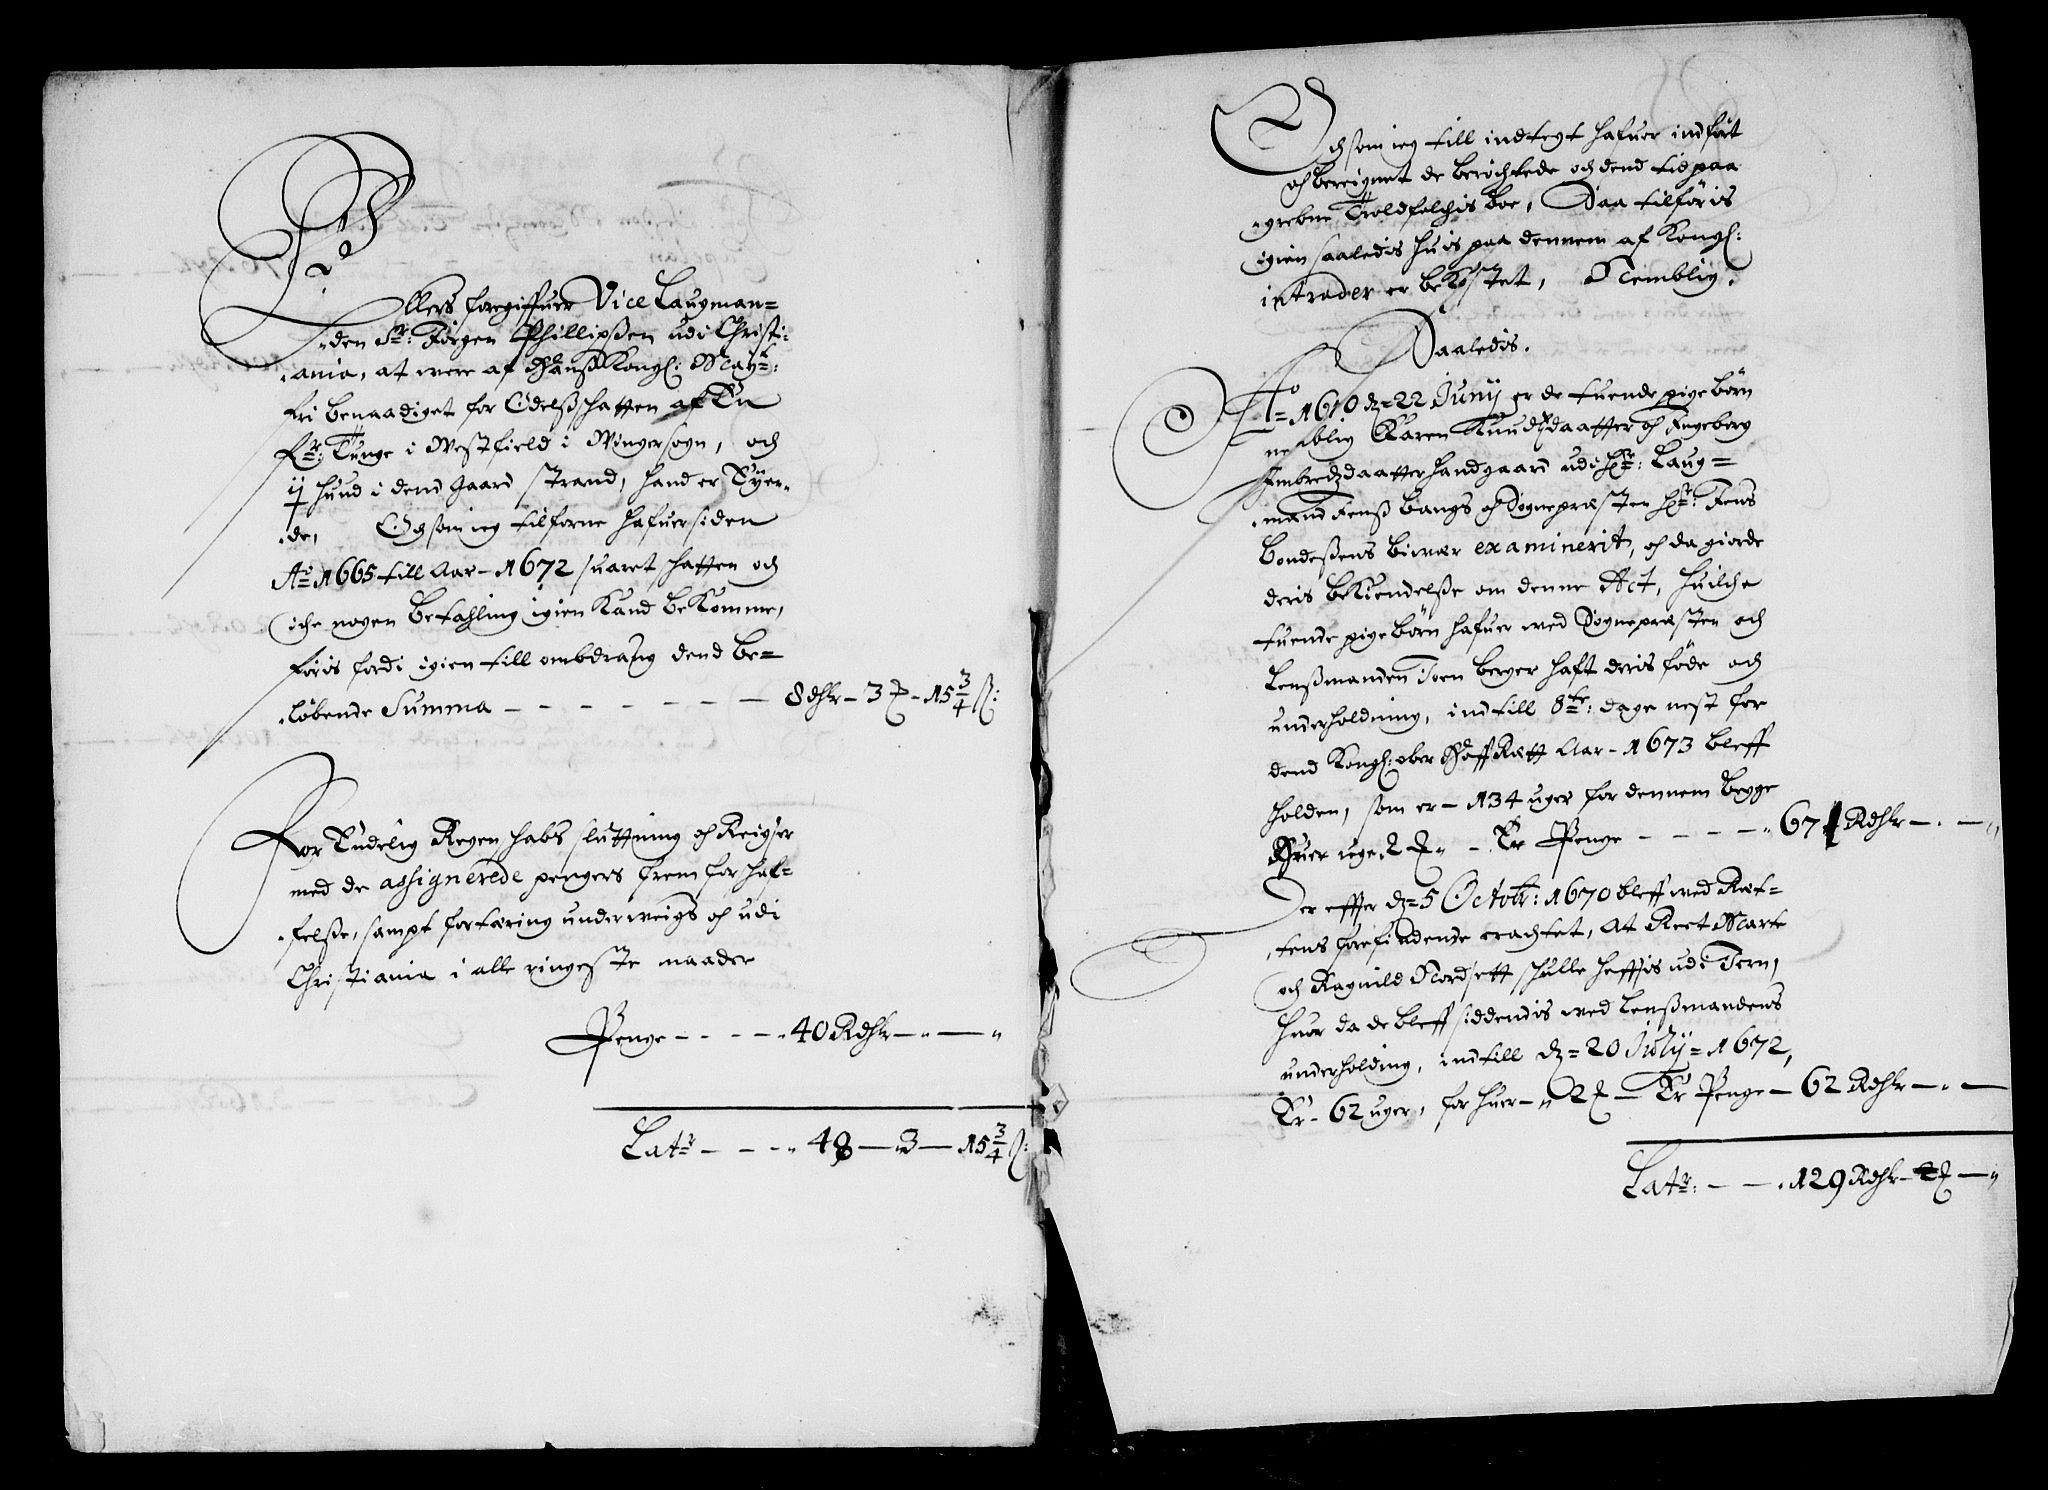 Ellers foregiffuer Vice Laugman-
den Sr: Jörgen Phillipßen udi Christi-
ania, at were af Hanß Kongl: Mayt:
fri benaadiget for Odelßschatten af En
Fr: Tunge i Westfield i Wingersogn, och
ij huud i dend gaard Strand, hand er Eyer-
de, Och som ieg tilforne hafuer siden
Ao 1665 till Aar - 1672 suaret schatten och
iche nogen betahling igien kand bekomme,
föris fordi igien till ombdrag dend be-
löbende Summa - - - - 8 dhlr - 3 # - 15 3/4 s:
For Endelig Regenschabs sluttning och Reigser
med de assignerede penger frem for schaf-
felße, sampt fortæring underweigs och udi
Christiania i alle ringeste maader
Penge - - - - 40 Rdhlr - " - "
Latr - - - " 48 - 3 - 15 3/4 s:
Och som ieg till indtegt hafuer indfört
och bereignet de berörchtede och dend tid paa
grebne Troldfolchis boe, Saa tilföris
igien saaledis huis paa dennem af Kongl:
intrader er bekostet, Nemblig.
Saaledis.
Ao 1670 dz = 22 Junij er de tuende pigebörn
neblig Karen Knudzdaatter och Ingeborg
Imbredzdaatter handgaard udi hr: Laug-
mand Jenß Bangs och Sognepræsten hr: Jens
Bondeßens biwær examinerit, och da giorde
deris bekiendelße om denne Act, huilche
tuende pigebörn hafuer wed Sognepræsten och
Lenßmanden Joen Berger haft deris föde och
underholdning, indtill 8te: dage nest for
dend Kongl: ober Hoff Rætt Aar - 1673 bleff
holden, som er - 134 uger for dennem begge
Huer uge 2 # " - Er Penge - - - - " 67 Rdhlr - " - "
Der effter dz = 5 Octobr: 1670 bleff wed Ræt-
tens forefindende erachtet, At Kert Marte
och Ragnild Nordsett schulle hefftis udi Jern,
huor da de bleff siddendis wed Lenßmandens
underholding, indtill dz = 20 Julij = 1672,
Er - 62 uger, for huer - " 2 # - Er Penge - 62 Rdhlr - " -
Latr: - - " 129 Rdhlr - 2 # - "